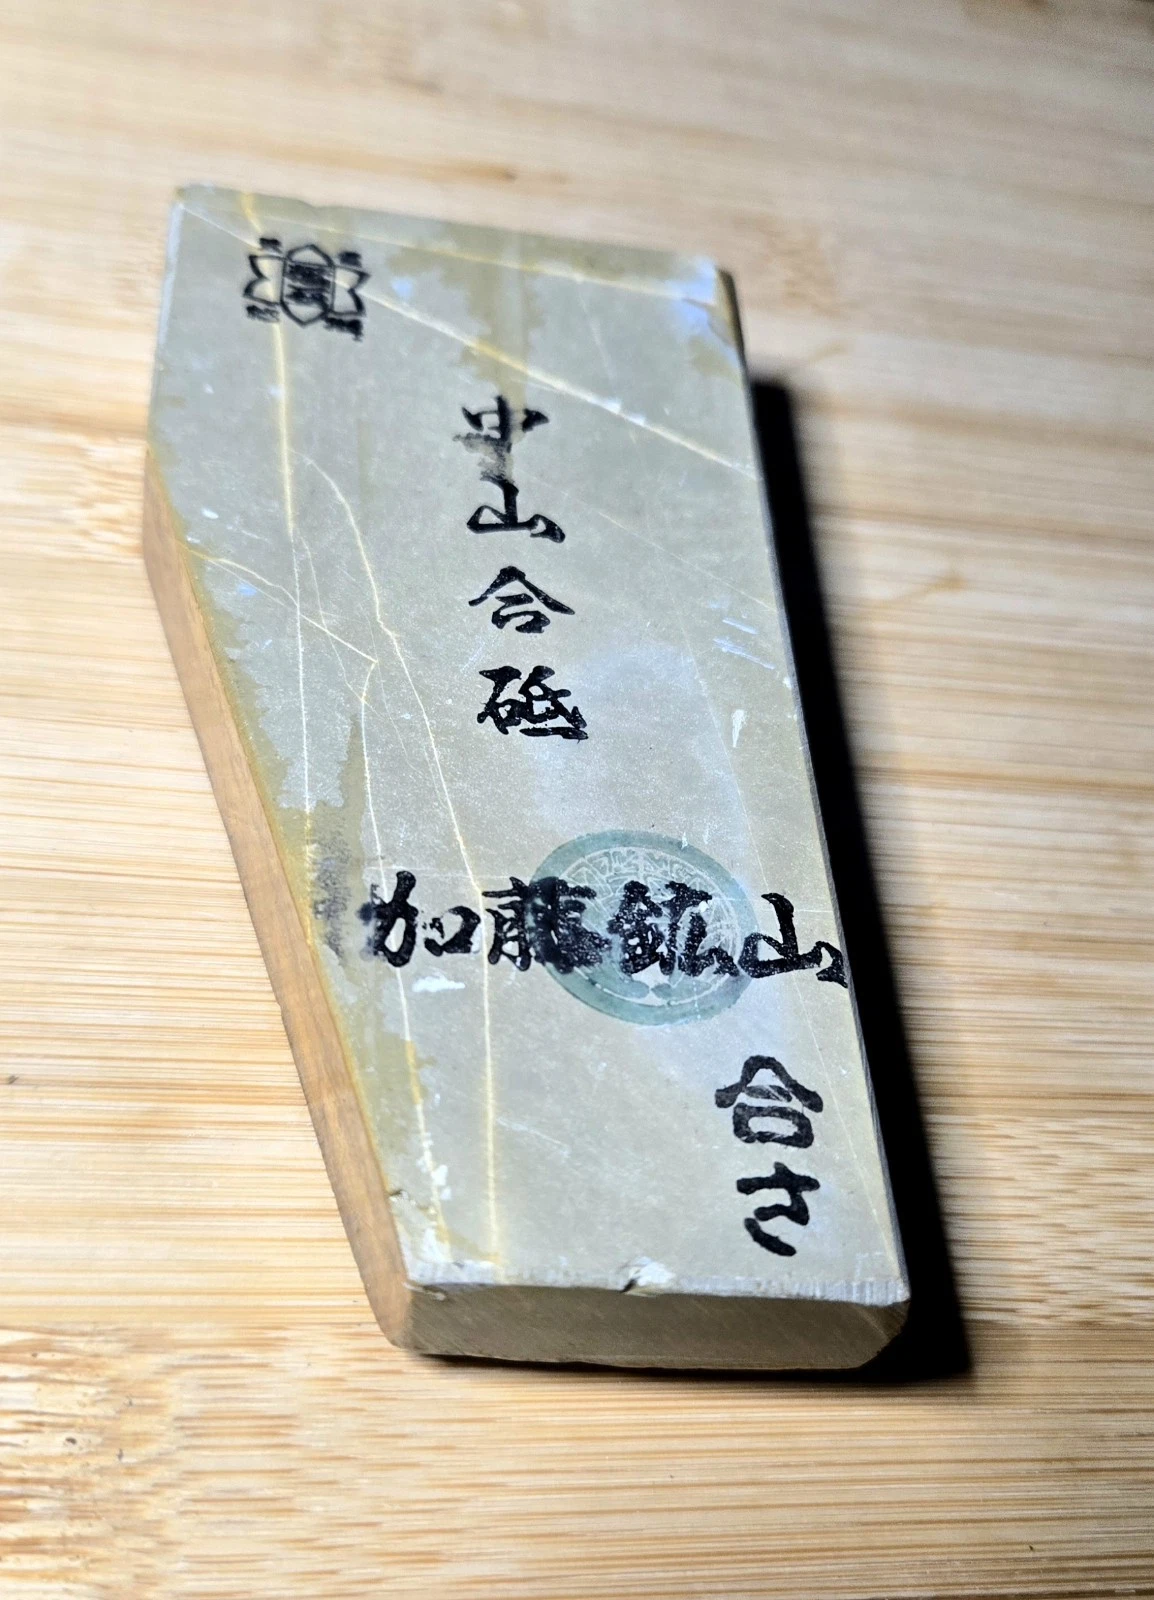 中山合砥
加藤鉱山
合さ